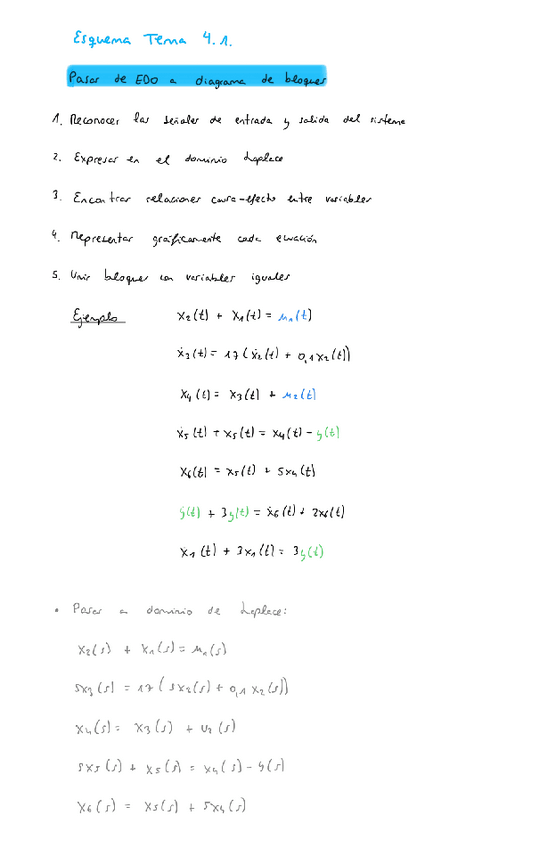 Esquema Tema 4.1.
Pasar de EDO a diagrama de bloques
1. Reconocer las señales de entrada y salida del sistema
2. Expresar en el dominio Laplace
3. Encontrar relaciones causa-efecto entre variables
4. Representar gráficamente cada ecuación
5. Unir bloques con variables iguales
Ejemplo
x₂(t) + x₁(t) = u₁(t)
ẋ₃(t) = 17(ẋ₂(t) + 0,1x₂(t))
x₄(t) = x₃(t) + u₂(t)
ẋ₅(t) + x₅(t) = x₄(t) - y(t)
x₆(t) = x₅(t) + 5x₄(t)
ẏ(t) + 3y(t) = ẋ₆(t) + 2x₆(t)
ẋ₁(t) + 3x₁(t) = 3y(t)
• Pasar a dominio de Laplace:
x₂(s) + x₁(s) = u₁(s)
sx₃(s) = 17(sx₂(s) + 0,1x₂(s))
x₄(s) = x₃(s) + u₂(s)
sx₅(s) + x₅(s) = x₄(s) - y(s)
x₆(s) = x₅(s) + 5x₄(s)